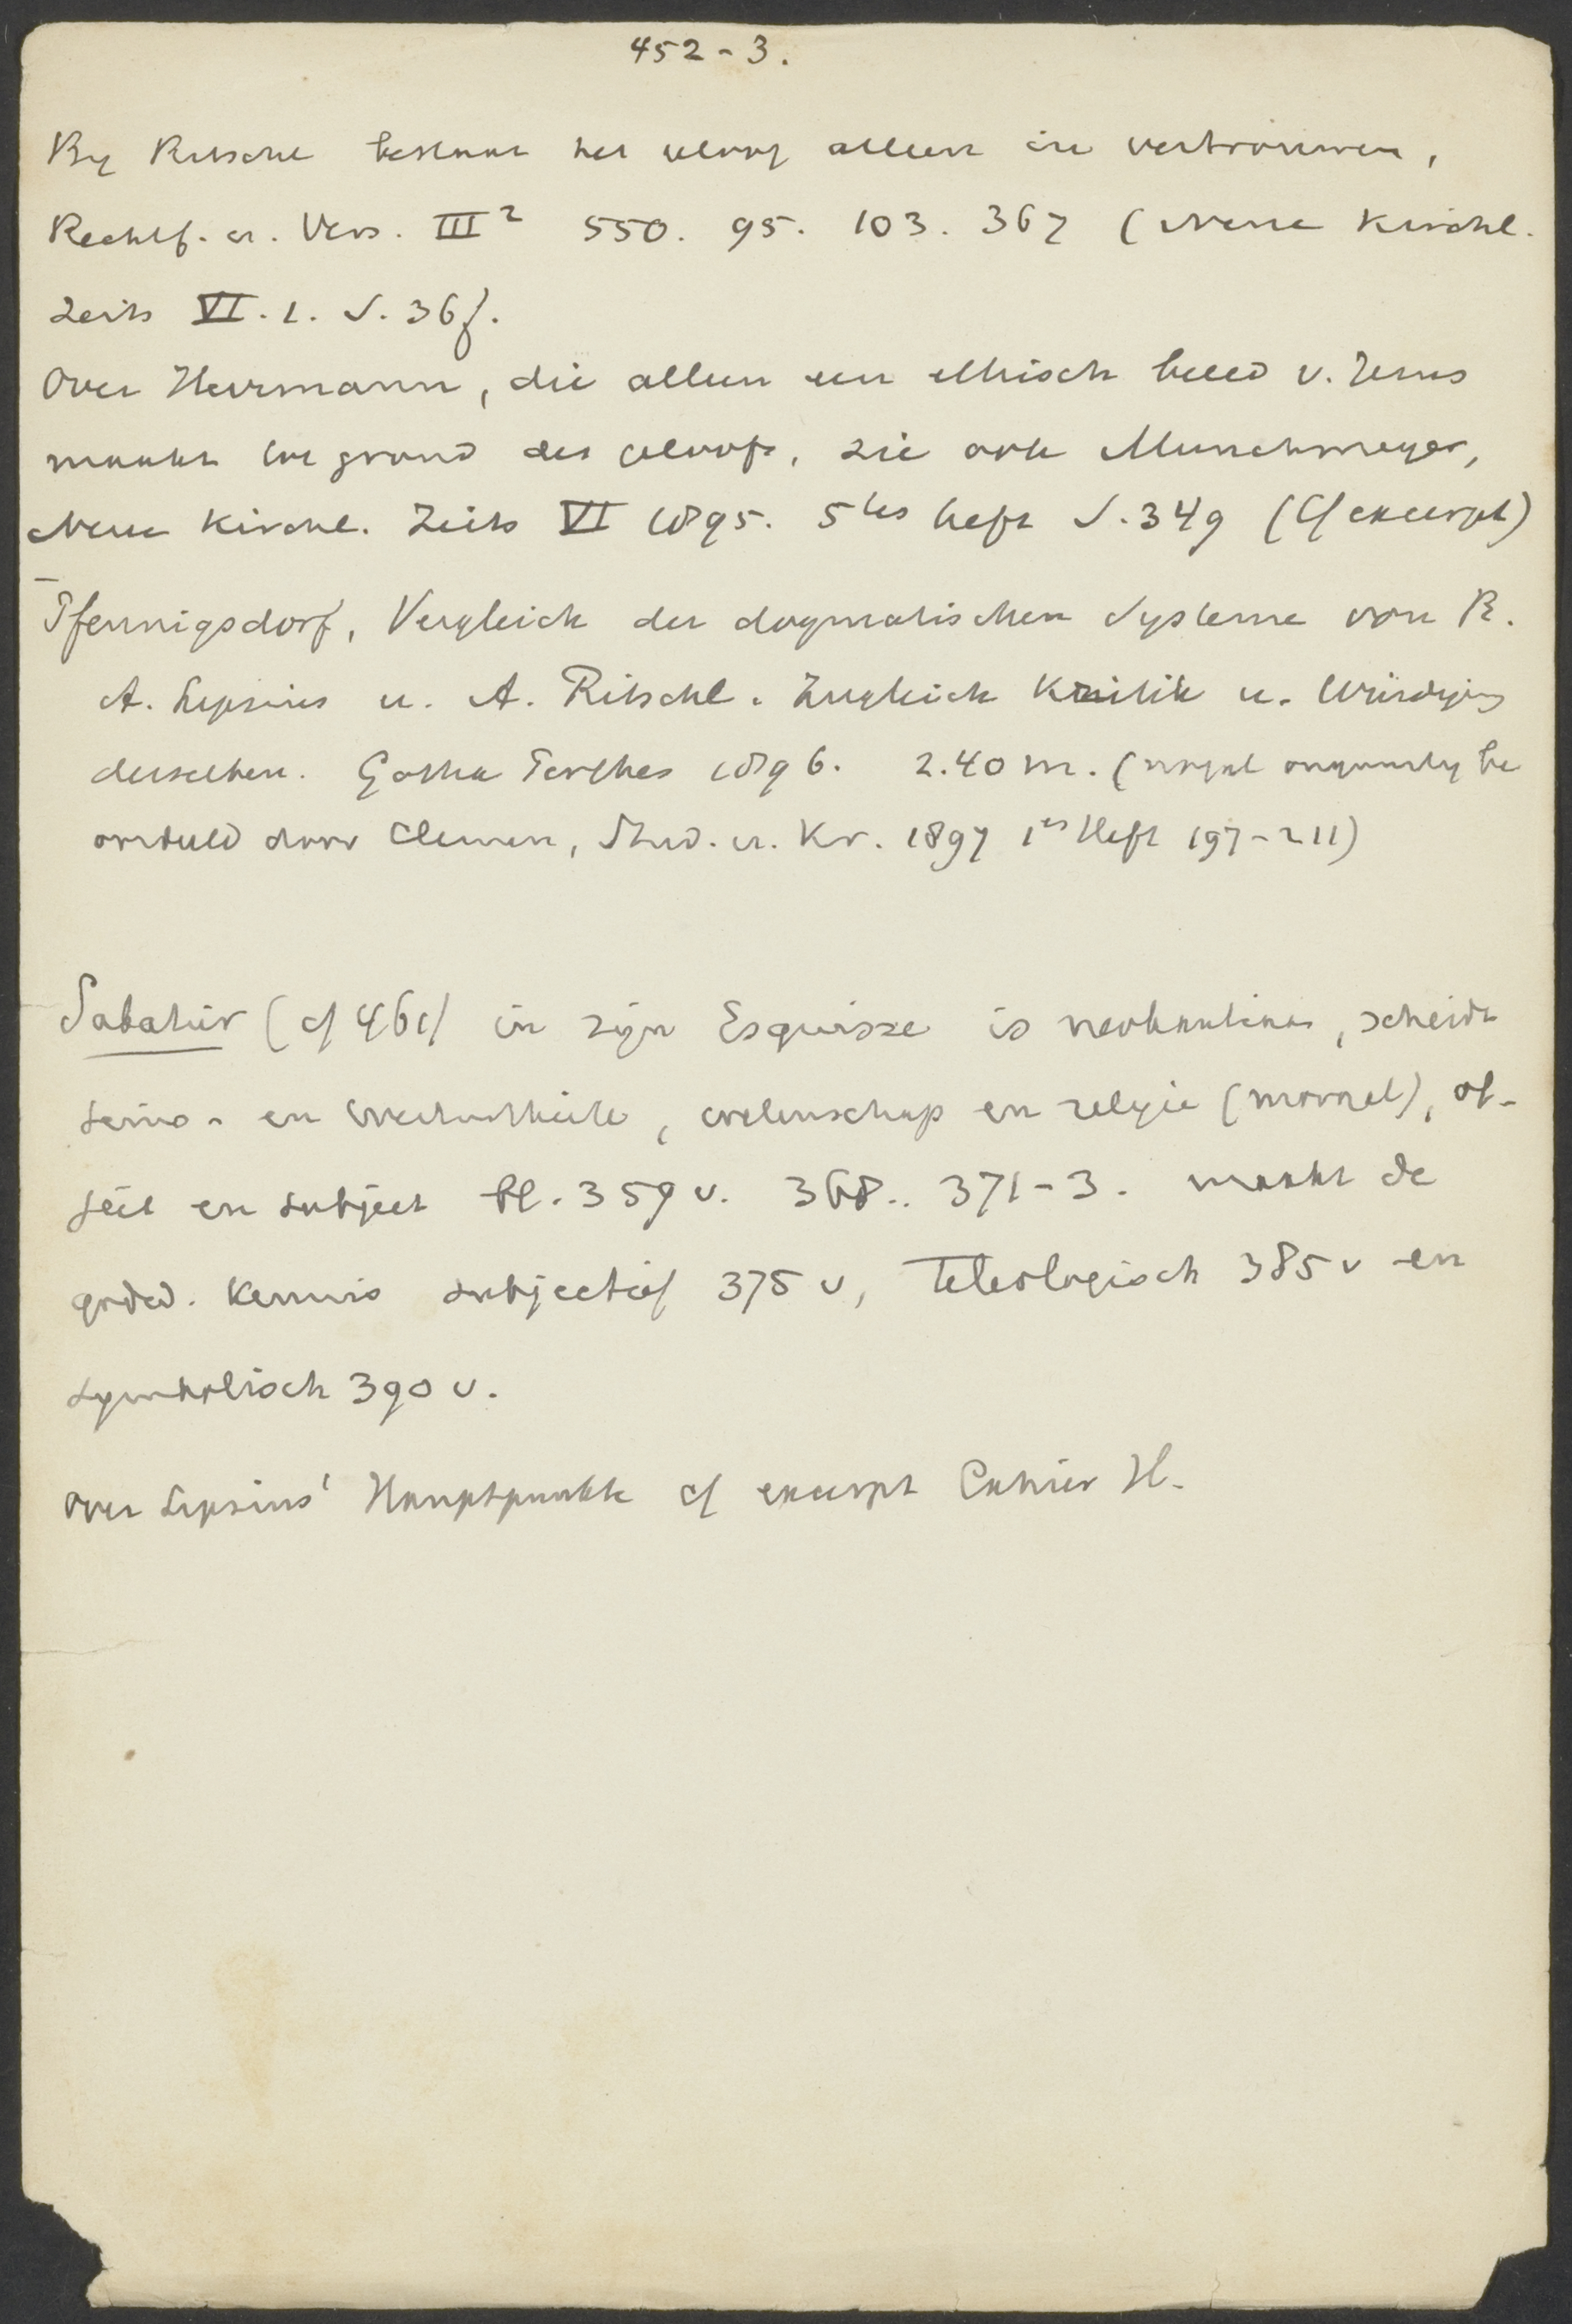 452-3.
By Ritschl bestaat het geloof alleen in vertrouwen,
Rechtf. u. Vers. III² 550. 95. 103. 367 (Neue Kirchl.
Zeits VI. 1. S. 36f.
Over Herrmann, die alleen een ethisch beeld v. Jezus
maakt tot grond des geloofs, zie ook Munchmeyer,
Neue Kirchl. Zeits VI 1895. 5tes Heft S. 349 (Cf excerpt)
Pfennigsdorf, Vergleich der dogmatischen Systeme von R.
A. Lipsius u. A. Ritschl. Zugleich Kritik u. Würdigung
derselben. Gotha Perthes 1896. 2.40 M. (nogal ongunstig be
oordeeld door Clemen, Stud. u. Kr. 1897 1es Heft 197-211)
Sabatier (cf 461) in zijn Esquisse is neokantiaan, scheidt
seins- en Werthurtheile, wetenschap en religie (moraal), ob-
ject en subject bl. 359 v. 368.. 371-3. maakt de
godsd. kennis subjectief 375 v, teleologisch 385 v en
symbolisch 390 v.
Over Lipsius' Hauptpunkte cf excerpt Cahier H.